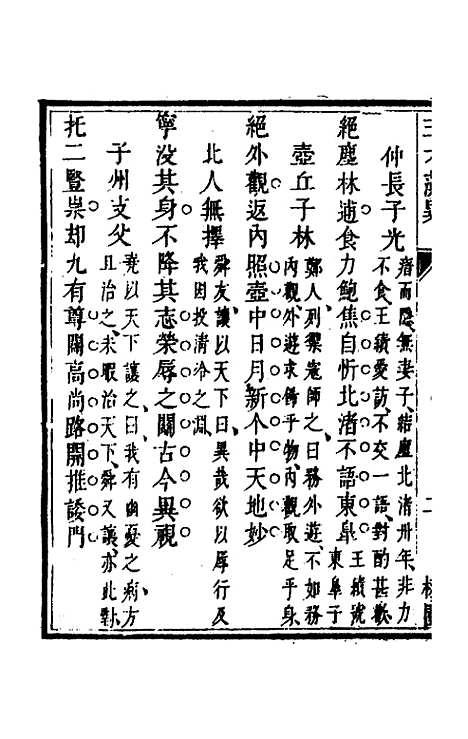 仲長子光 瘖而隱無妻子結廬北渚卅年非力
不食王績愛訪不交一語對酌甚歡
絕塵林逋食力鮑焦自忻北渚不語東皐 王績號
東皐子
壺丘子林 鄭人列禦寇師之曰務外遊不如務
內觀外遊求備乎物內觀取足乎身
絕外觀返內照壺中日月新个中天地妙
北人無擇 舜友讓以天下曰異哉欲以辱行及
我因投清泠之淵
寧沒其身不降其志榮辱之關古今異視
子州支父 堯以天下讓之曰我有幽憂之病方
且治之未暇治天下舜又讓亦此對
托二豎祟却九有尊關高尚路開推諉門